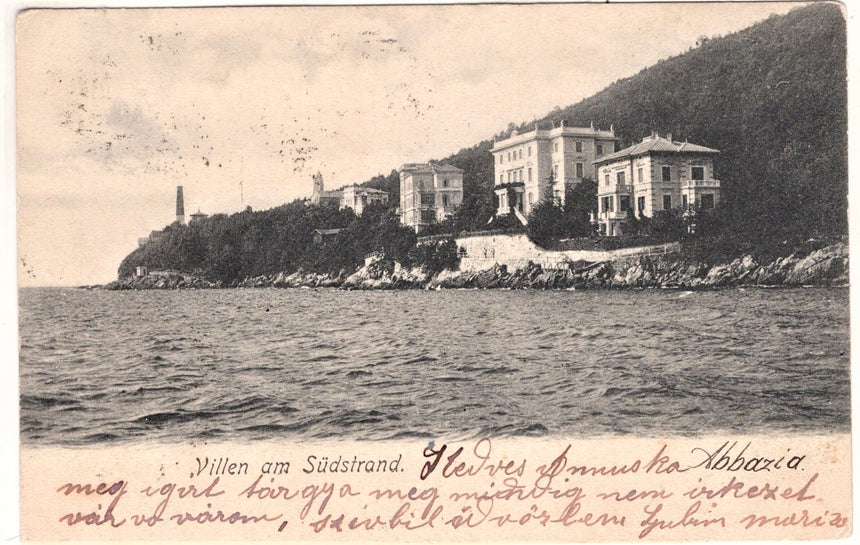 Villen am Südstrand. Kedves Annuska Abbazia.
meg igirt tárgya meg mindvig nem irkezet
vár va várom, szivbil üdvözlem Ljubin mariz